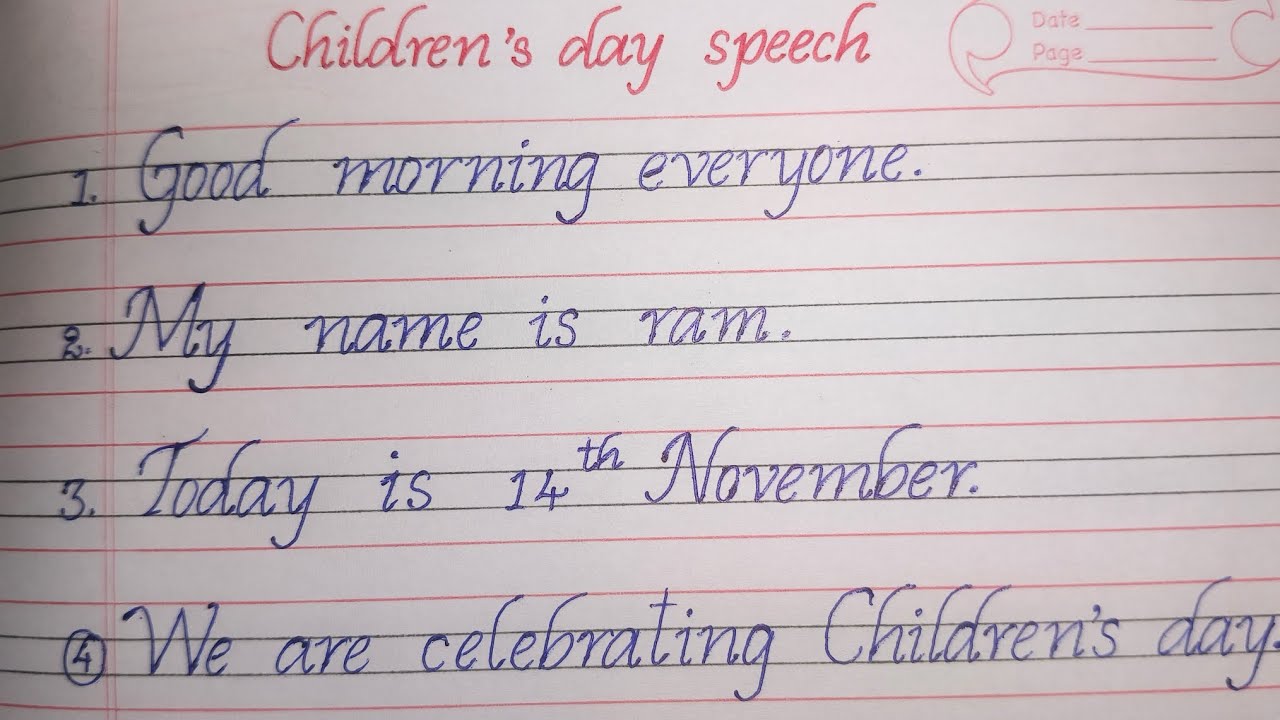 Children's day speech
Date
Page
1. Good morning everyone.
2. My name is ram.
3. Today is 14th November.
4 We are celebrating Children's day.